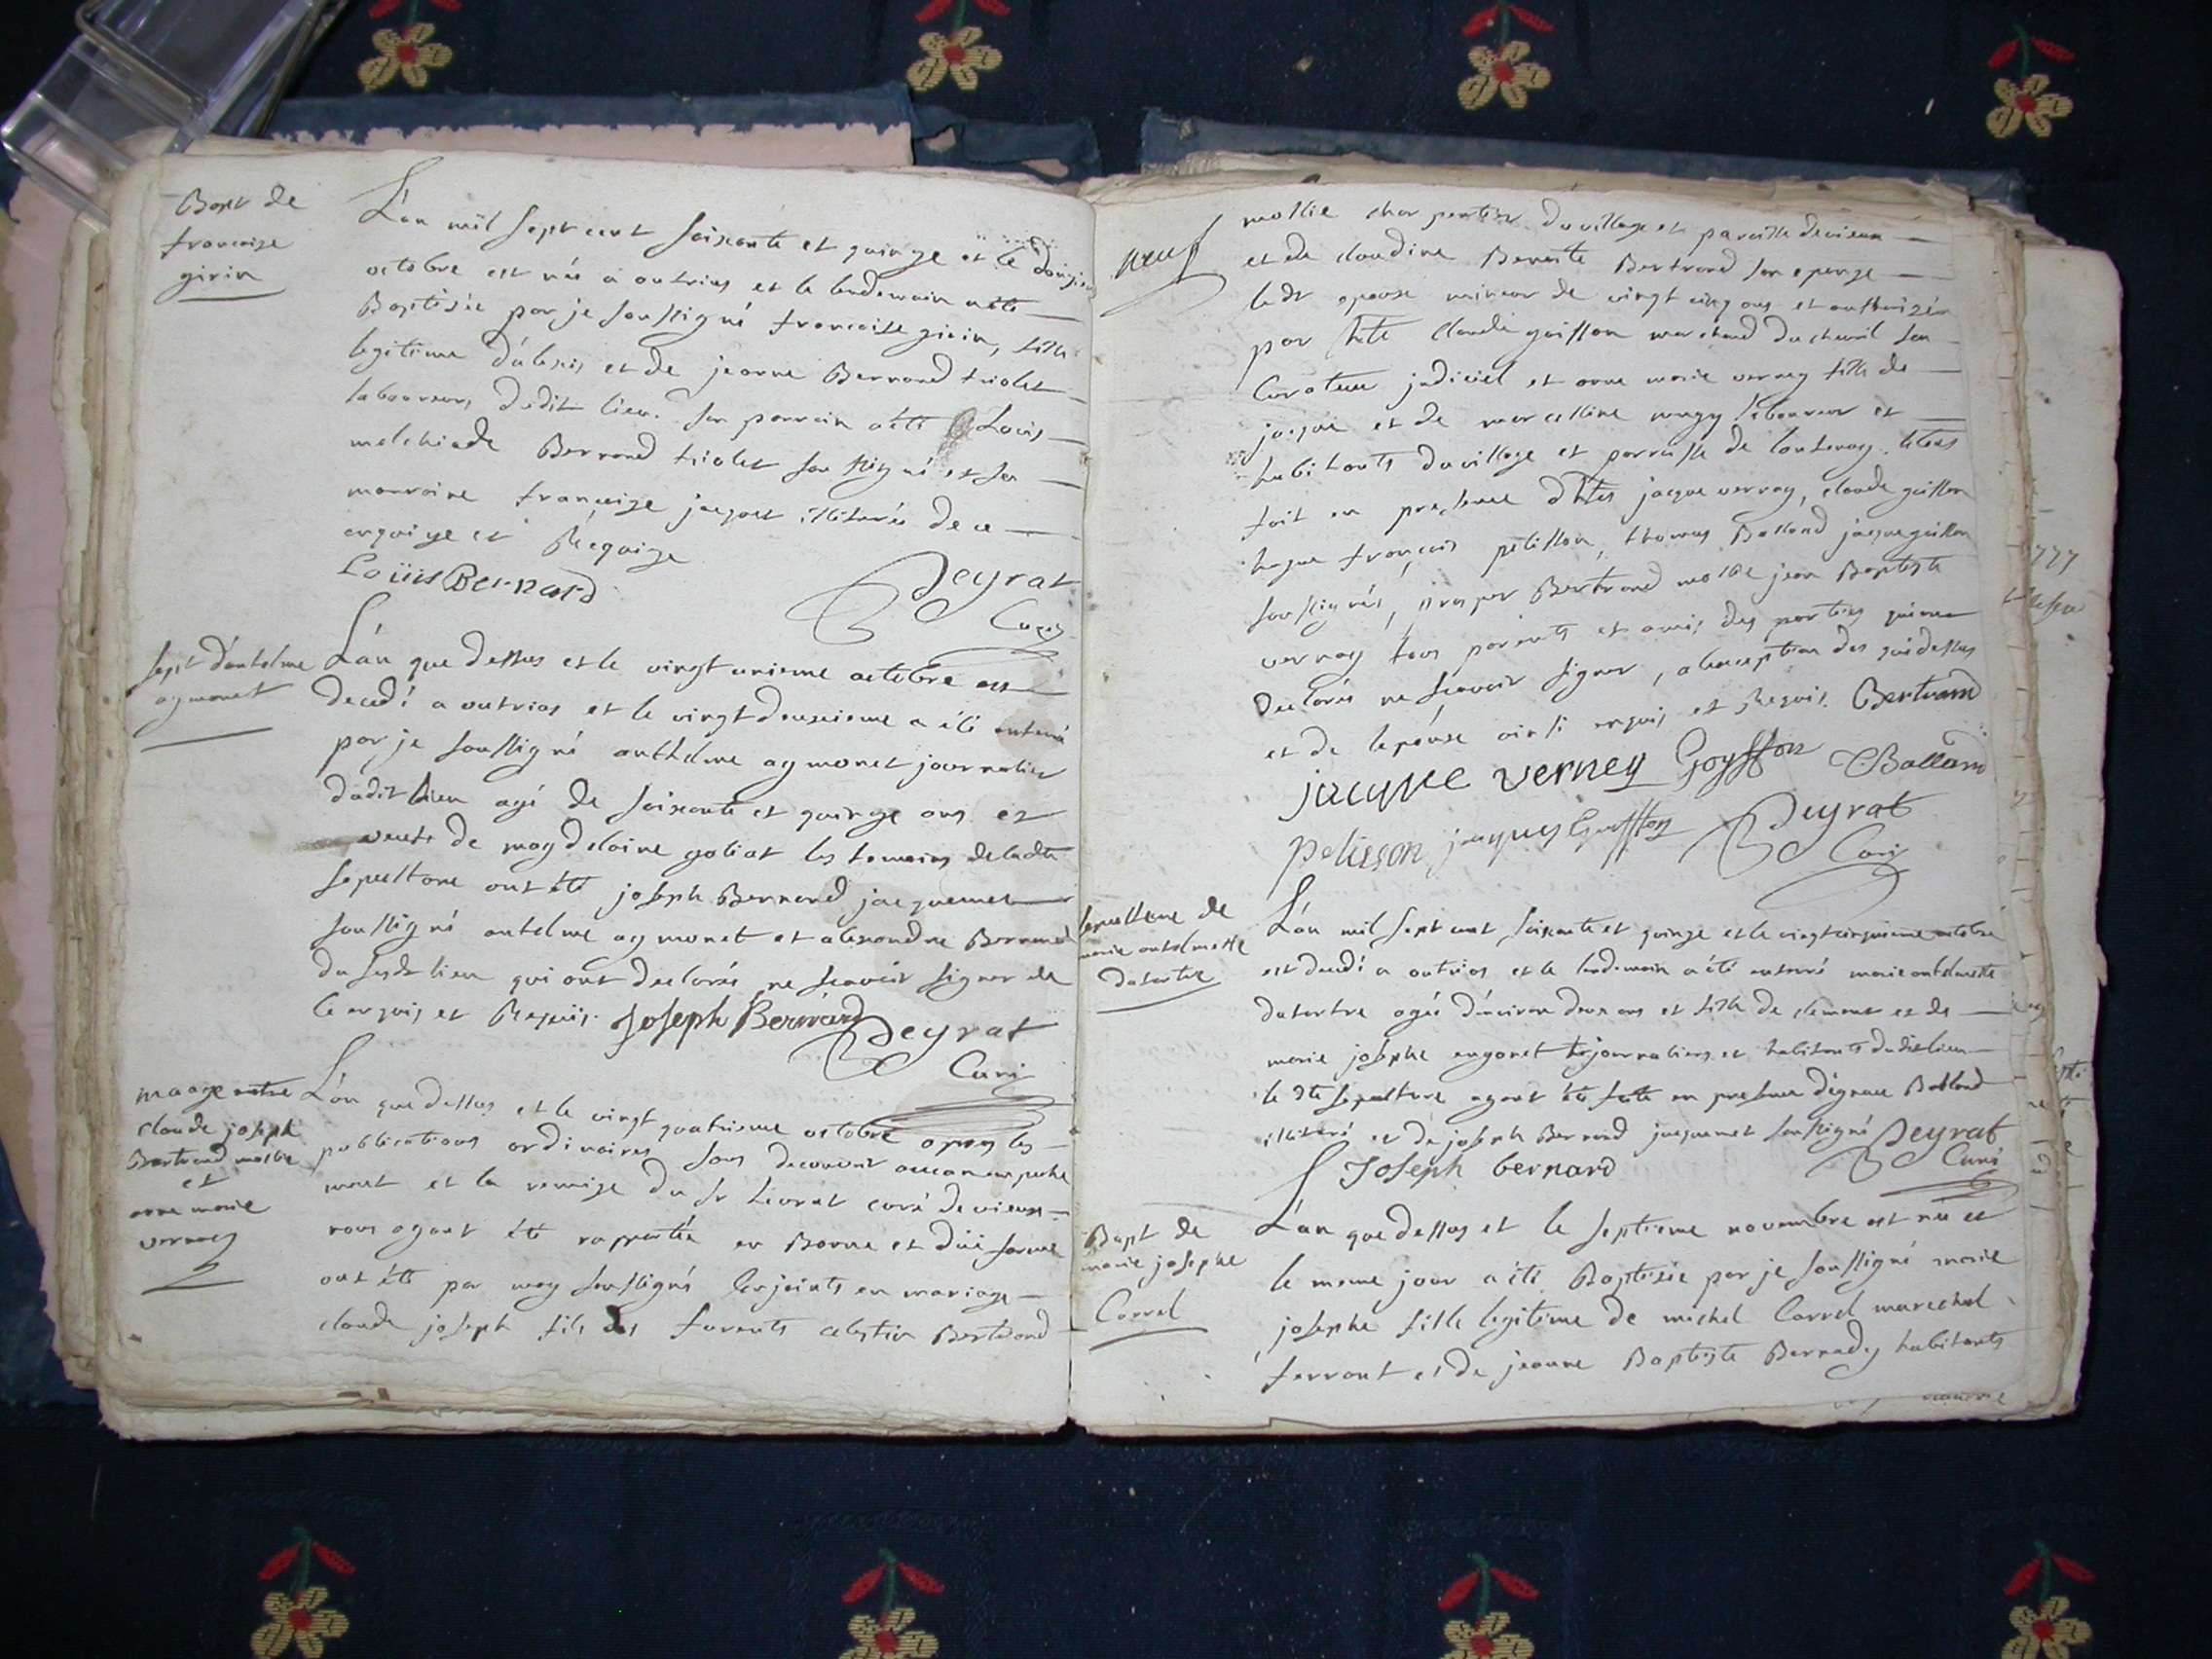 Bapt de
francoise
girin
L'an mil sept cent soixante et quinze et le douzie
octobre est née a outrias et le lendemain a été
Baptisée par je soussigné francoise girin, fille
legitime d'alexis et de jeanne Bernand triolet
laboureurs dudit lieu. Son parrain a été Louis
melchiade Bernand triolet soussigné et sa
marraine françoise jacquet illiterée de ce
enquise et Requise
Louis Bernard Deyrat
Curé
sept d'antelme
aymonet
L'an que dessus et le vingt unieme octobre est
decedé a outrias et le vingt deuxieme a été enterré
par je soussigné anthelme aymonet journalier
dudit lieu agé de soixante et quinze ans et
veuf de magdelaine goliat les temoins de ladte
sepulture ont été joseph Bernand jacquemet
soussigné antelme aymonet et alexandre Bernand
du susdt lieu qui ont declarés ne scavoir signer de
ce enquis et Requis. Joseph Bernard Deyrat
Curé
maage entre
claude joseph
Bertrand mollie
et
anne marie
verney
L'an que dessus et le vingt quatrieme octobre apres les
publications ordinaires sans decouvrir aucun empeche
ment et la remise du Sr curé de vieux
nous ayant été raportée en Bonne et düe forme
ont été par moy soussigné Conjoints en mariage
claude joseph fils des furents celestin Bertrand
neuf
mollie charpentier du village et paroisse de vieux
et de claudine Benoite Bertrand son epouse
ledt epoux mineur de vingt cinq ans et authorizé
par claude guisson marchand du chemil son
Curateur judiciel et anne marie verney fille de
jacque et de marcelline laboureur et
habitants du village et parroisse de
fait en presence jacque verney, claude guisson
françois pelisson, thomas Balland jacque guisson
soussignés, prosper Bertrand mollie jean Baptiste
verney tous parents et amis des parties
declarés ne scavoir signer, a l'exception des qui dessus
et de l'epouse ainsi enquis et Requis. Bertrand
jacque verney Goyffon Balland
pelisson jacques Guiffon Deyrat
Curé
sepulture de
marie antelmette
dutertre
L'an mil sept cent soixante et quinze et le vingt cinquieme octobre
est decedé a outrias et le lendemain a été enterré marie antelmette
dutertre agée d'environ deux ans et fille de clement et de
marie josephe journaliers et habitants dudit lieu
le dte sepulture ayant été faite en presence Balland
illiteré et de joseph Bernand jacquemet soussigné Deyrat
Joseph bernard Curé
Bapt de
marie josephe
Carrel
L'an que dessus et le septieme novembre est née et
le meme jour a été Baptisée par je soussigné marie
josephe fille legitime de michel Carrel marechal
ferrant et de jeanne Baptiste Bernady habitants